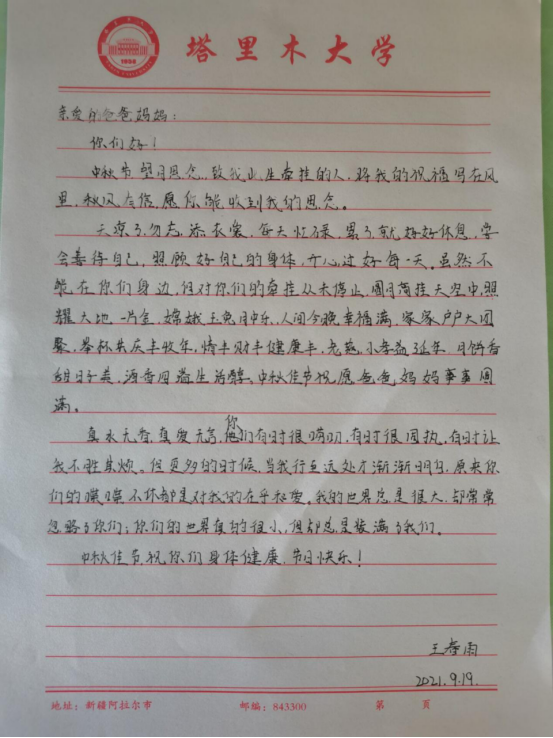 1958
塔里木大学
亲爱的爸爸妈妈：
你们好！
中秋节望月思念，致我此生牵挂的人，将我的祝福写在风
里，秋风有信，愿你能收到我的思念。
天凉了，勿忘添衣裳，每天忙碌，累了就好好休息，学
会善待自己，照顾好自己的身体，开心过好每一天。虽然不
能在你们身边，但对你们的牵挂从未停止，圆月高挂天空中，照
耀大地一片金，嫦娥玉兔月中乐，人间今晚幸福满，家家户户大团
聚，举杯共庆丰收年，情丰财丰健康丰，老燕小孝益延年，月饼香
甜日子美，酒香四溢生活醇。中秋佳节祝愿爸爸，妈妈事事圆
满。
真水无香，真爱无言，你们有时很唠叨，有时很固执，有时让
我不胜其烦。但更多的时候，当我行至远处才渐渐明白，原来你
们的喋喋不休都是对我们的在乎和爱，我的世界总是很大，却常常
忽略了你们；你们的世界真的很小，但却总是装满了我们。
中秋佳节，祝你们身体健康，节日快乐！
王春雨
2021.9.19.
地址：新疆阿拉尔市 邮编：843300 第 页